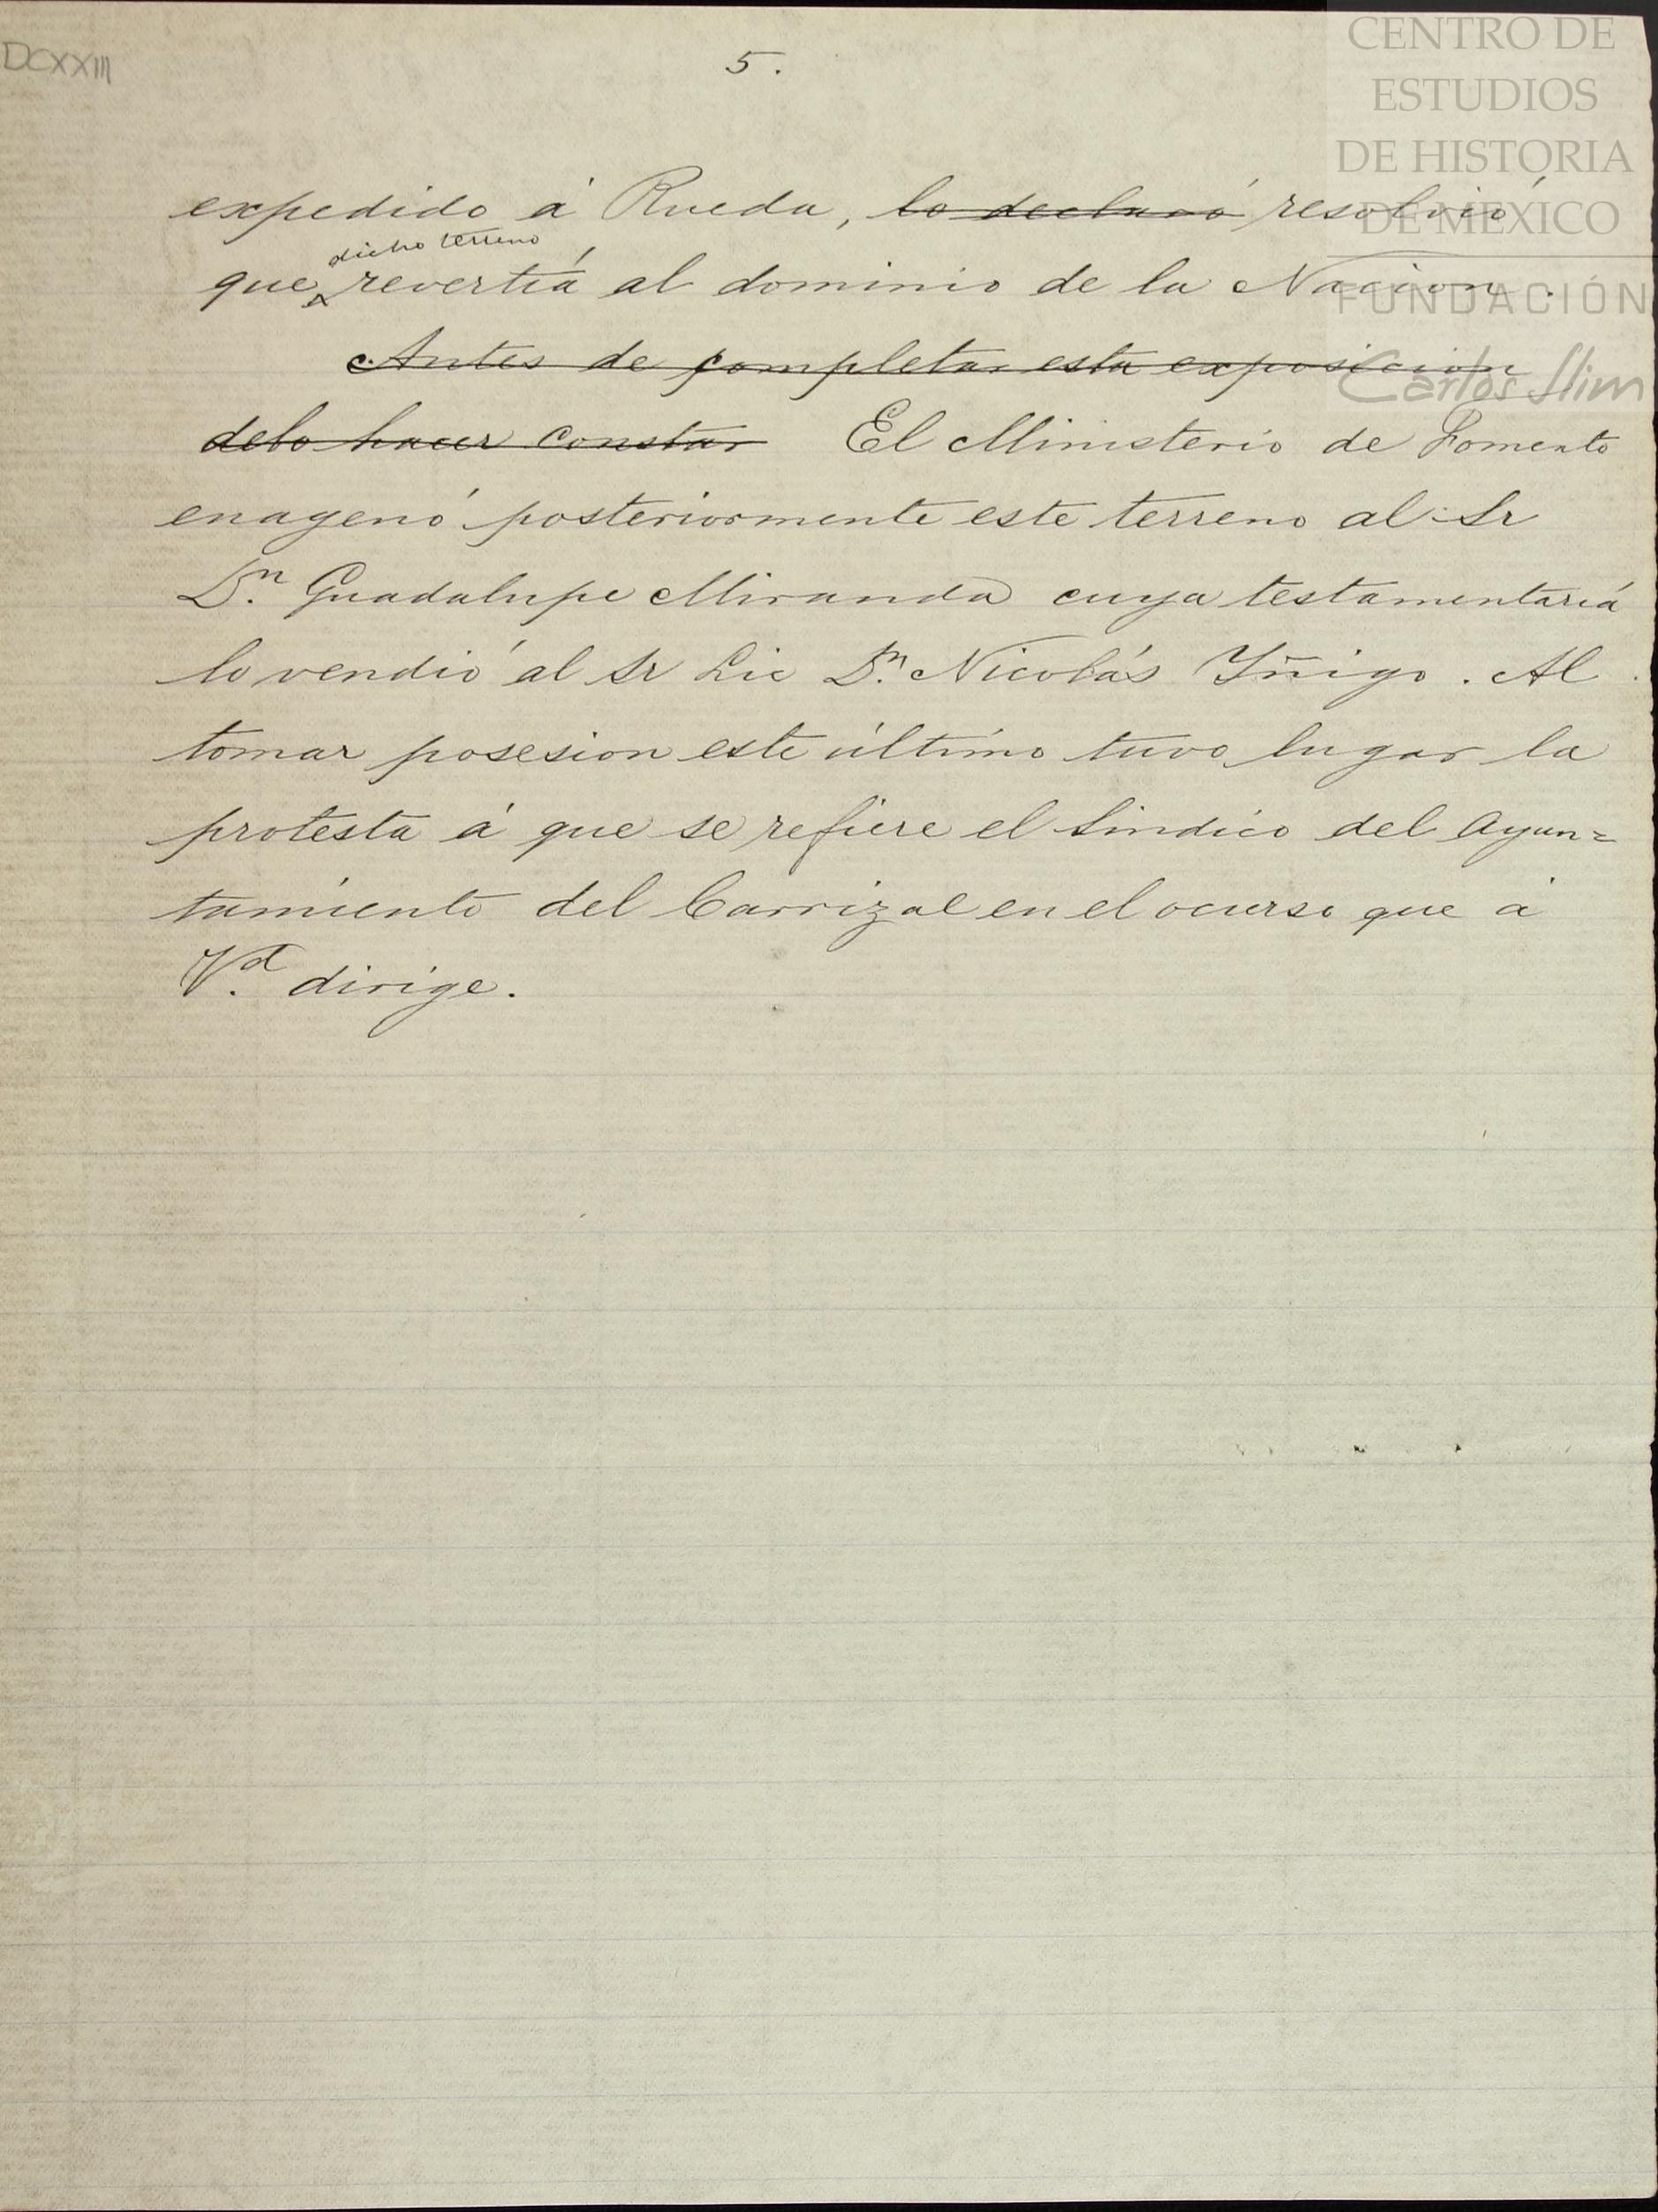 DCXXIII
5.
CENTRO DE
ESTUDIOS
DE HISTORIA
DE MÉXICO
FUNDACIÓN
Carlos Slim
expedido á Rueda, lo declaró resolvió
dicho terreno
que revertiá al dominio de la Nacion.
Antes de completar esta exposicion
debo hacer constar El Ministerio de Fomento
enagenó posteriormente este terreno al Sr
Dn. Guadalupe Miranda cuya testamentariá
lo vendió al Sr Lic Dn. Nicolás Yñigo. Al
tomar posesion este último tuvo lugar la
protesta á que se refiere el Sindico del Ayun=
tamiento del Carrizal en el ocurso que á
Vd. dirige.